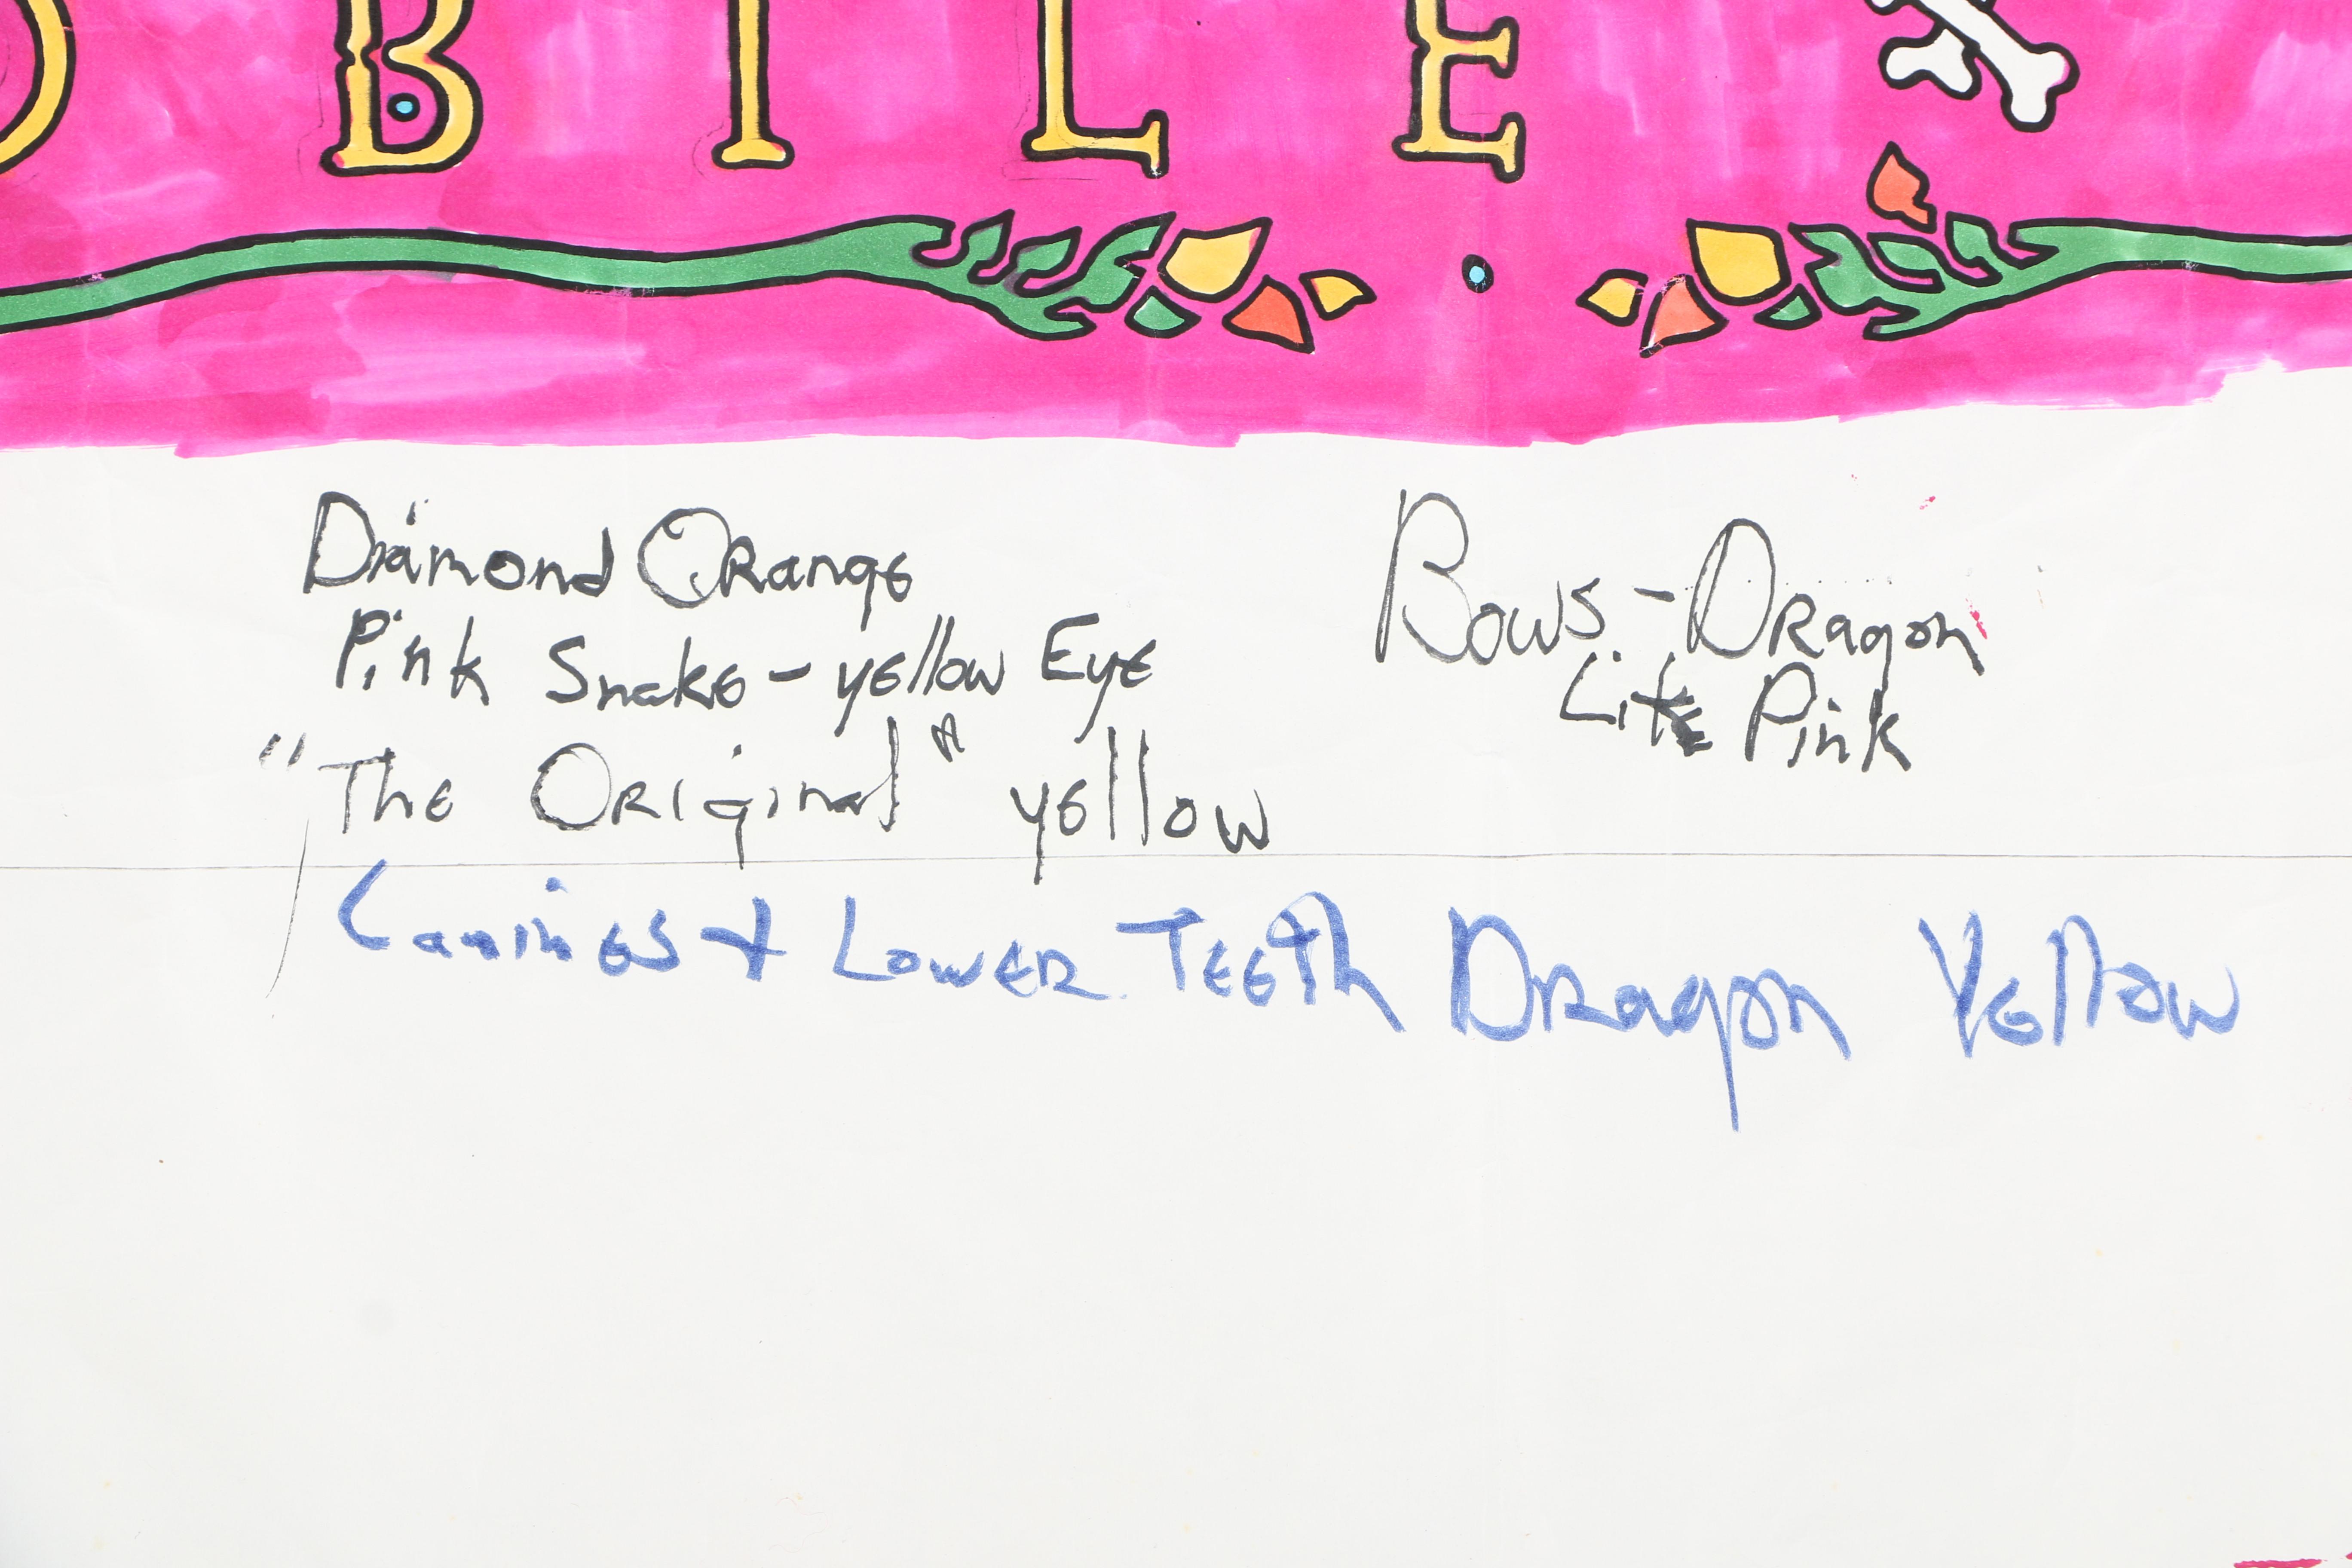 OBILE
Diamond Orange
Pink Snake - yellow Eye
"The Original" yellow
Bows - Dragon
Lite Pink
Canines + Lower Teeth Dragon Yellow